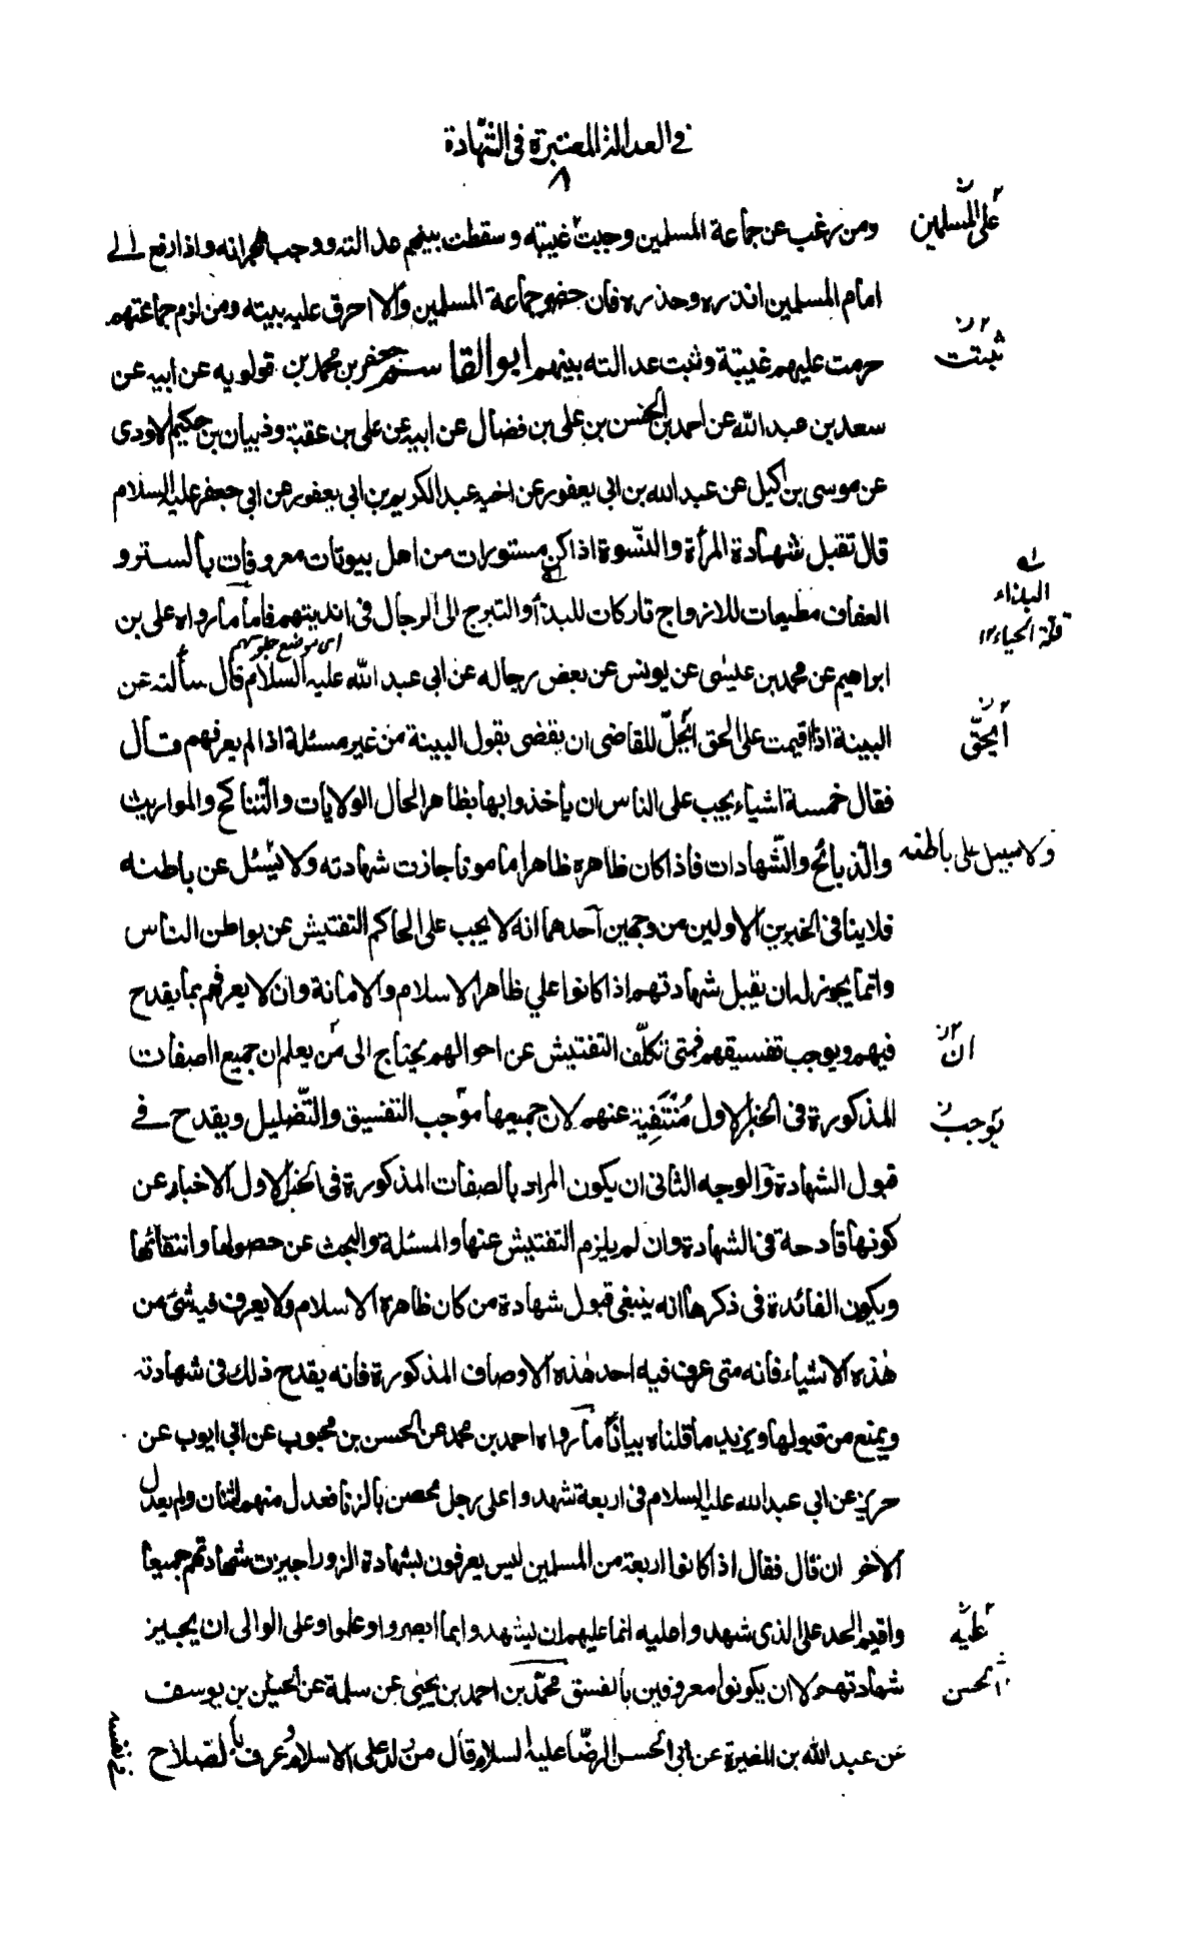 في العدالة المعتبرة فى الشهادة
٨
على المسلمين
ومن يرغب عن جماعة المسلمين وجبت غيبته و سقطت بينهم عدالته ووجب هجرانه واذا رفع الى
امام المسلمين انذره وحذره فان حضر جماعة المسلمين والا احرق عليه بيته ومن لزم جماعتهم
ثبتت
حرمت عليهم غيبتة وثبت عدالته بينهم ابو القاسم جعفر بن محمد بن قولويه عن ابيه عن
سعد بن عبد الله عن احمد بن الحسن بن على بن فضال عن ابيه عن على بن عقبة وذبيان بن حكيم الاودى
عن موسى بن اكيل عن عبد الله بن ابى يعفور عن اخيه عبد الكريم بن ابى يعفور عن ابي جعفر عليه السلام
قال تقبل شهادة المرأة والنسوة اذا كن مستورات من اهل بيوتات معروفات بالستر و
البذاء
قلة الحياء ١٢
العفاف مطيعات للازواج تاركات للبذأ والتبرج الى الرجال فى انديتهم فاما ما رواه على بن
اى موضع جلوسهم
ابراهيم عن محمد بن عيسى عن يونس عن بعض رجاله عن ابى عبد الله عليه السلام قال سألته عن
أيحق
البينة اذا اقيمت على الحق أيحل للقاضى ان يقضى بقول البينة من غير مسئلة اذا لم يعرفهم قال
فقال خمسة اشياء يجب على الناس ان يأخذوا بها بظاهر الحال الولايات والتناكح والمواريث
ولا سبيل على باطنه
والذبائح والشهادات فاذا كان ظاهره ظاهرا مامونا جازت شهادته ولا يسئل عن باطنه
فلا ينافى الخبرين الاولين من وجهين احدهما انه لا يجب على الحاكم التفتيش عن بواطن الناس
وانما يجوز له ان يقبل شهادتهم اذا كانوا علي ظاهر الاسلام والامانة وان لا يعرفهم بما يقدح
ان
فيهم ويوجب تفسيقهم فمتى تكلف التفتيش عن احوالهم يحتاج الى من يعلم ان جميع الصفات
يوجب
المذكورة فى الخبر الاول منتفية عنهم لان جميعها موجب التفسيق والتضليل ويقدح فے
قبول الشهادة والوجه الثانى ان يكون المراد بالصفات المذكورة فى الخبر الاول الاخبار عن
كونها قادحة فى الشهادة وان لم يلزم التفتيش عنها والمسئلة والبحث عن حصولها وانتفائها
ويكون الفائدة فى ذكرها انه ينبغى قبول شهادة من كان ظاهره الاسلام ولا يعرف فيه شئ من
هذه الاشياء فانه متى عرف فيه احد هذه الاوصاف المذكورة فانه يقدح ذلك فى شهادته
ويمنع من قبولها ويزيد ما قلناه بيانا ما رواه احمد بن محمد عن الحسن بن محبوب عن ابى ايوب عن
حريز عن ابي عبد الله عليه السلام فى اربعة شهدوا على رجل محصن بالزنا فعدل منهم اثنان ولم يعدل
الاخر ان قال فقال اذا كانوا اربعة من المسلمين ليس يعرفون بشهادة الزور اجيزت شهادتهم جميعا
عليه
واقيم الحد على الذى شهدوا عليه انما عليهم ان يشهدوا بما ابصروا وعلموا وعلى الوالى ان يجيز
الحسن
شهادتهم الا ان يكونوا معروفين بالفسق محمد بن احمد بن يحيى عن سلمة عن الحسين بن يوسف
عن عبد الله بن المغيرة عن ابى الحسن الرضا عليه السلام قال من ولد على الاسلام وعرف بالصلاح